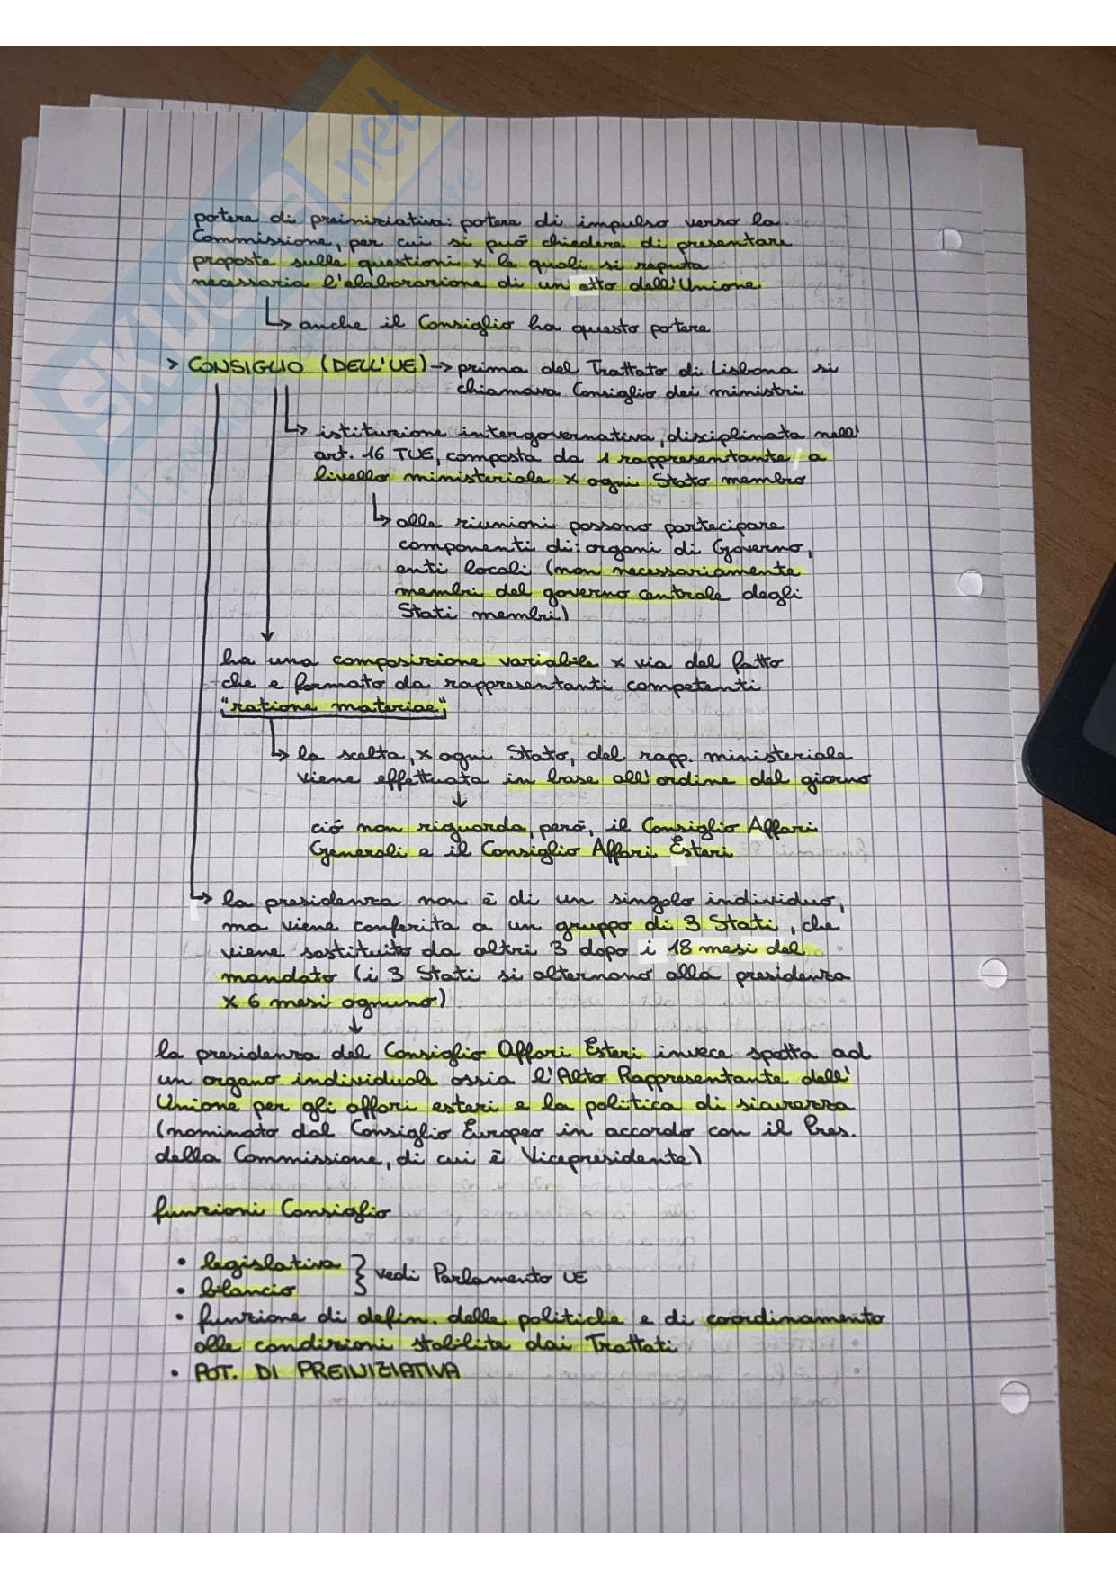 SKUOLA.net
potere di preiniziativa: potere di impulso verso la
Commissione, per cui si può chiedere di presentare
proposte sulle questioni x le quali si reputa
necessaria l'elaborazione di un atto dell'Unione
↳ anche il Consiglio ha questo potere
> CONSIGLIO (DELL'UE) → prima del Trattato di Lisbona si
chiamava Consiglio dei ministri
↳ istituzione intergovernativa, disciplinata nell'
art. 16 TUE, composta da 1 rappresentante a
livello ministeriale x ogni Stato membro
↳ alle riunioni possono partecipare
componenti di: organi di Governo,
enti locali (non necessariamente
membri del governo centrale degli
Stati membri)
ha una composizione variabile x via del fatto
che e formato da rappresentanti competenti
"ratione materiae"
↳ la scelta, x ogni Stato, del rapp. ministeriale
viene effettuata in base all'ordine del giorno
↓
ciò non riguarda, però, il Consiglio Affari
Generali e il Consiglio Affari Esteri
↳ la presidenza non è di un singolo individuo,
ma viene conferita a un gruppo di 3 Stati, che
viene sostituito da altri 3 dopo i 18 mesi del
mandato (i 3 Stati si alternano alla presidenza
x 6 mesi ognuno)
↓
la presidenza del Consiglio Affari Esteri invece spetta ad
un organo individuale ossia l'Alto Rappresentante dell'
Unione per gli affari esteri e la politica di sicurezza
(nominato dal Consiglio Europeo in accordo con il Pres.
della Commissione, di cui è Vicepresidente)
funzioni Consiglio
• legislativa
• bilancio } vedi Parlamento UE
• funzione di defin. delle politiche e di coordinamento
alle condizioni stabilite dai Trattati
• POT. DI PREINIZIATIVA